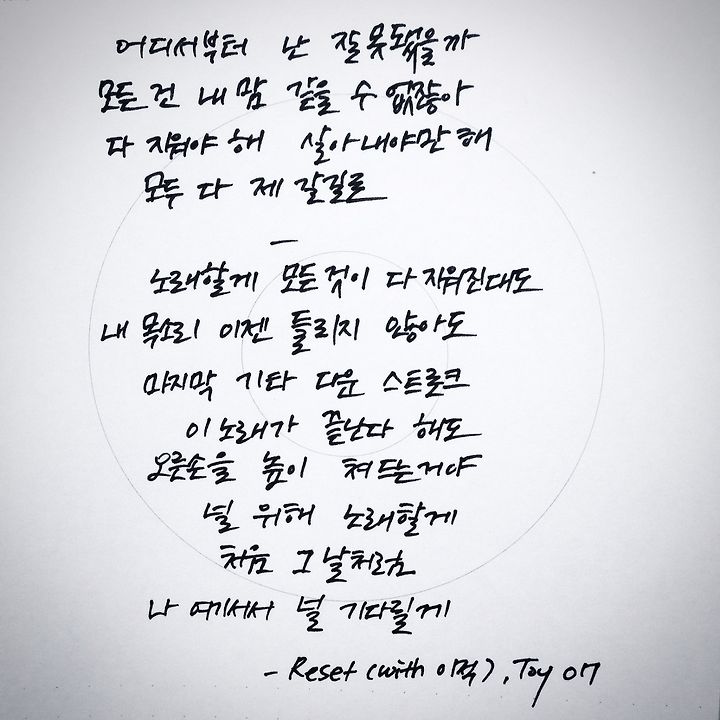 어디서부터 난 잘못됐을까
모든 건 내 맘 같을 수 없잖아
다 지워야 해 살아내야만 해
모두 다 제 갈길로
—
노래할게 모든것이 다 지워진대도
내 목소리 이젠 들리지 않아도
마지막 기타 다운 스트로크
이 노래가 끝난다 해도
오른손을 높이 쳐 드는거야
널 위해 노래할게
처음 그 날처럼
나 여기서서 널 기다릴게
- Reset (with 이적), Toy 07